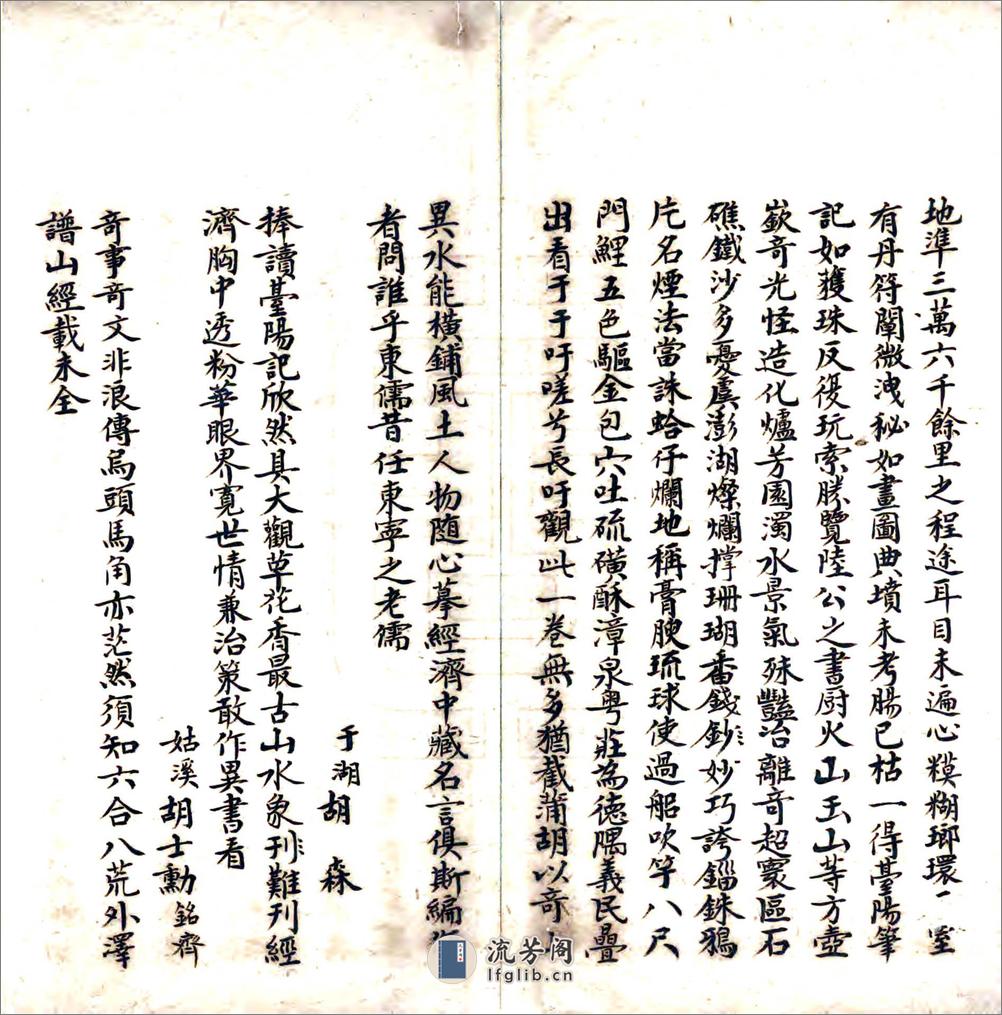 地準三萬六千餘里之程途耳目未遍心糢糊瑯環一室
有丹符闡微洩秘如畫圖典墳未考腸已枯一得臺陽筆
記如獲珠反復玩索勝覽陸公之書廚火山玉山等方壺
嶔奇光怪造化爐芳園濁水景氣殊豔冶離奇超寰區石
礁鐵沙多憂虞澎湖燦爛撐珊瑚番錢鈔妙巧誇錙銖鴉
片名煙法當誅蛤仔爛地稱膏腴琉球使過船吹竽八尺
門鯉五色驅金包穴吐硫磺酥漳泉粵莊為德隅義民疊
出看于于吁嗟兮長吁觀此一卷無多猶截蒲胡以奇
異水能橫鋪風土人物随心摹經濟中藏名言俱斯編
者問誰乎東儒昔任東寧之老儒
于湖胡森
捧讀臺陽記欣然具大觀草花香最古山水象刋難刊經
濟胸中透粉華眼界寬世情兼治策敢作異書看
姑溪胡士勳銘齊
奇事奇文非浪傳烏頭馬角亦茫然須知六合八荒外澤
譜山經載未全
流芳阁
lfglib.cn